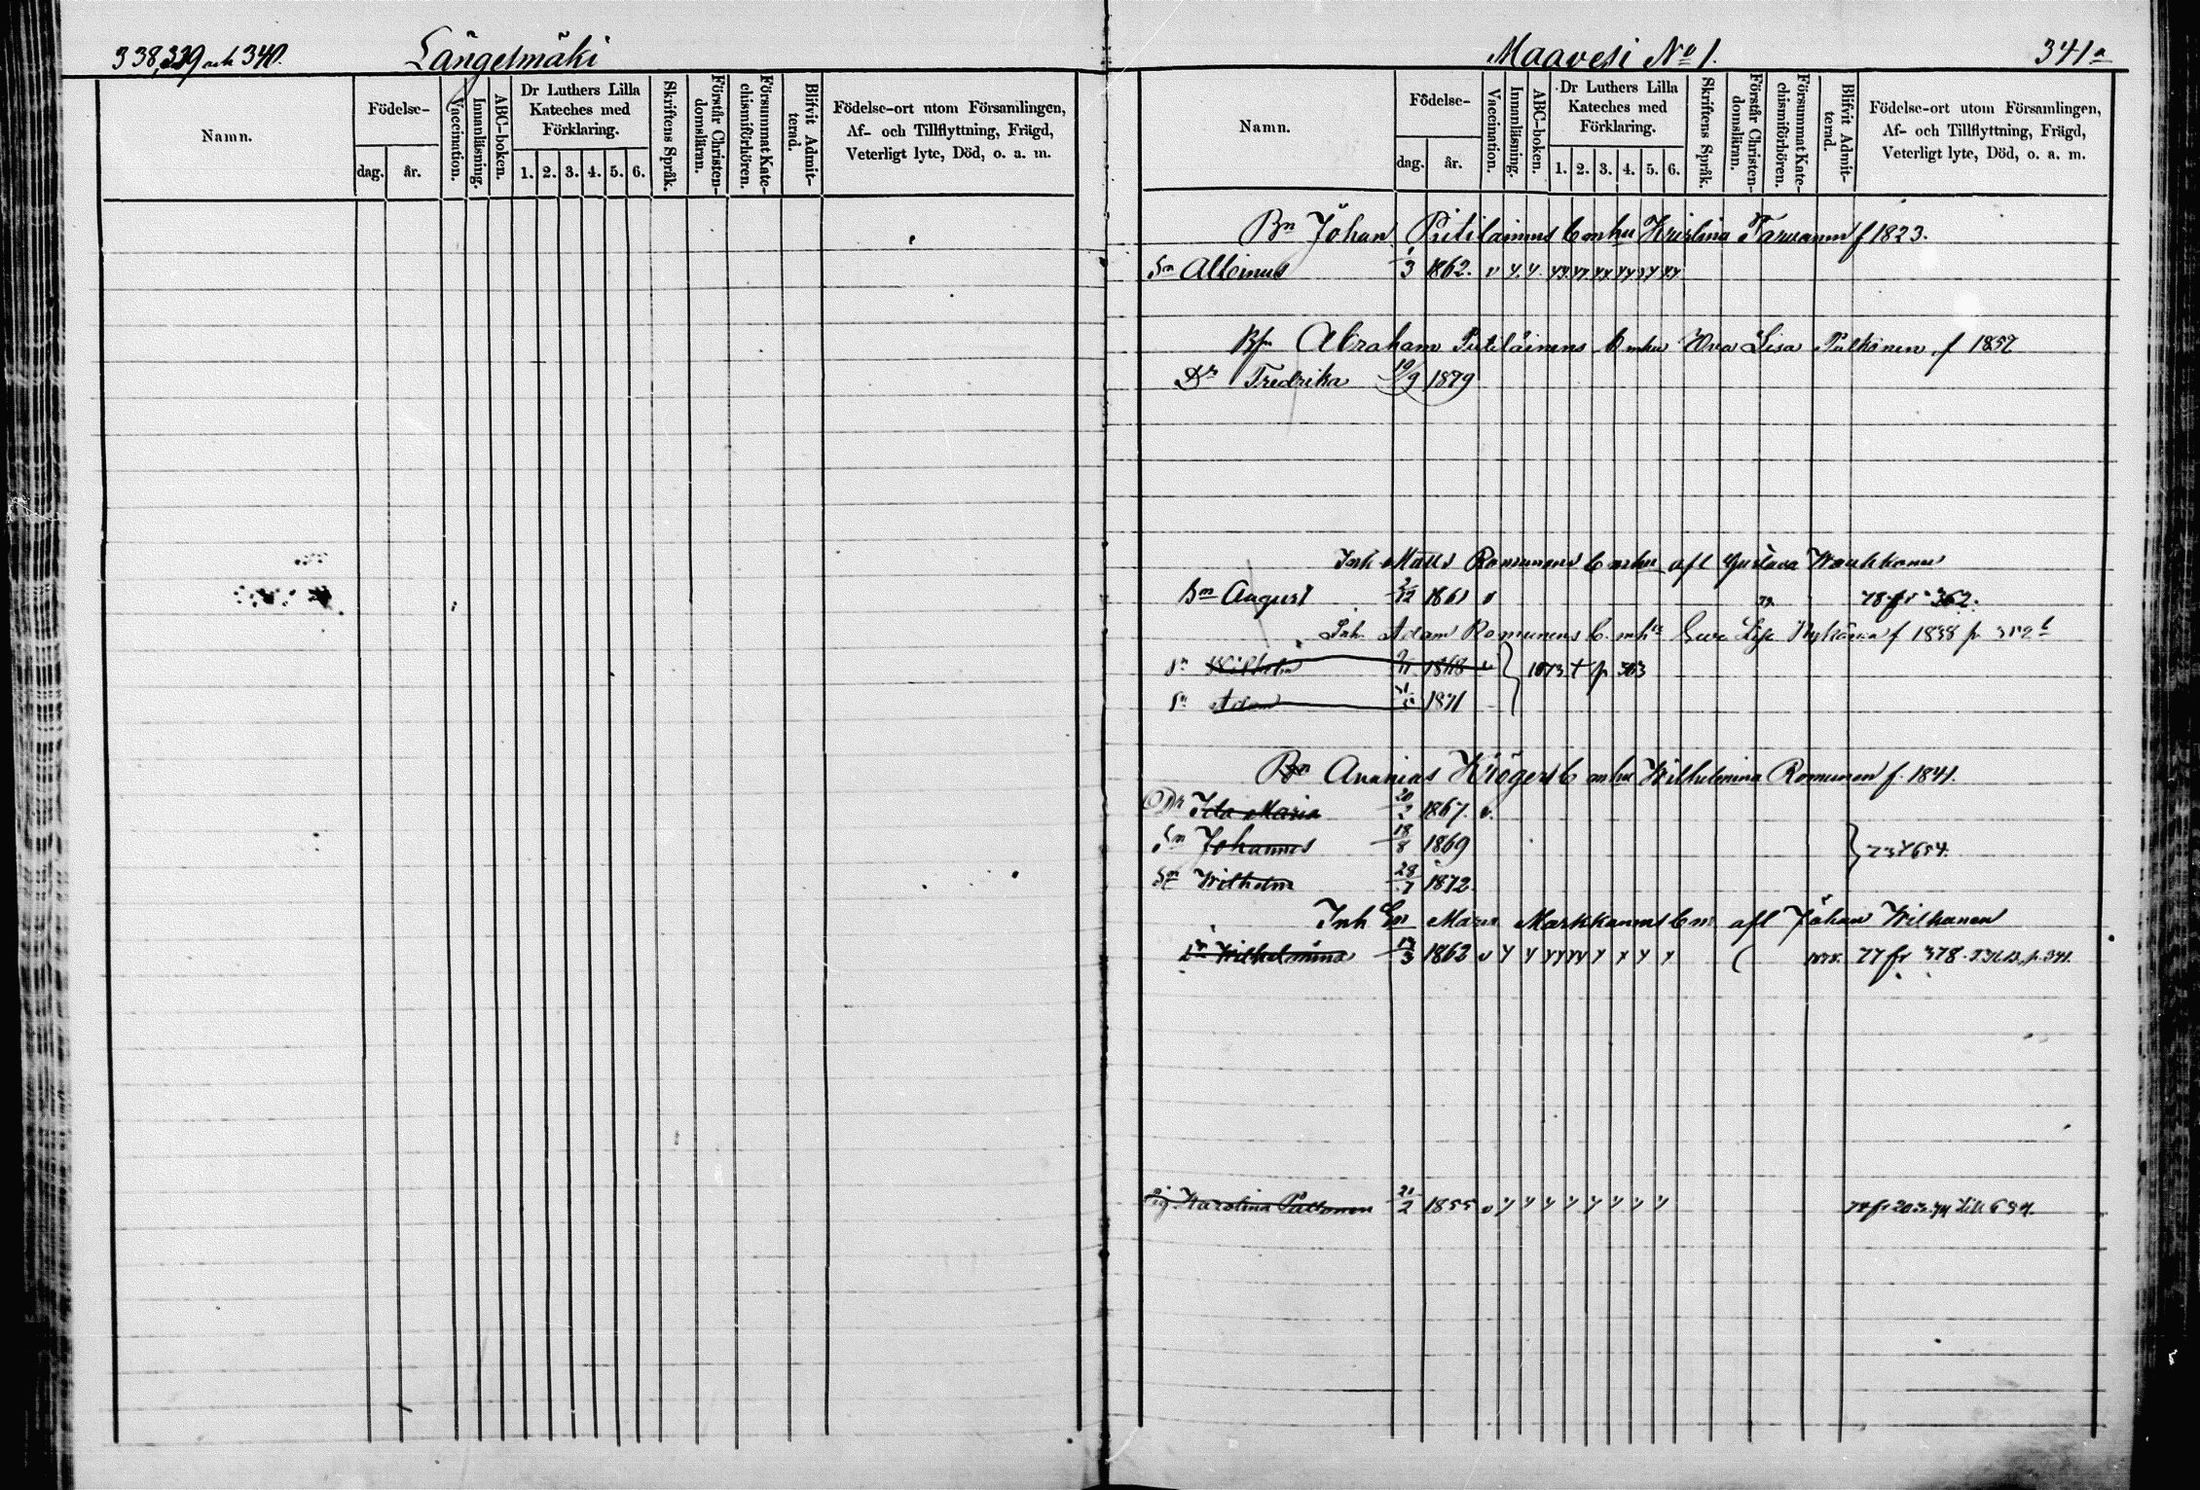 338, 339 och 340. Längelmäki
Namn.
Födelse-
dag. år.
Vaccination.
Innanläsning.
ABC-boken.
Dr Luthers Lilla
Kateches med
Förklaring.
1. 2. 3. 4. 5. 6.
Skriftens Språk.
Förstår Christen-
domsläran.
Försummat Kate-
chismiförhören.
Blifvit Admit-
terad.
Födelse-ort utom Församlingen,
Af- och Tillflyttning, Frägd,
Veterligt lyte, Död, o. a. m.
Maavesi No 1. 341a
Namn.
Födelse-
dag. år.
Vaccination.
Innanläsning.
ABC-boken.
Dr Luthers Lilla
Kateches med
Förklaring.
1. 2. 3. 4. 5. 6.
Skriftens Språk.
Förstår Christen-
domsläran.
Försummat Kate-
chismiförhören.
Blifvit Admit-
terad.
Födelse-ort utom Församlingen,
Af- och Tillflyttning, Frägd,
Veterligt lyte, Död, o. a. m.
Bn Johan b m hu Kristina f 1823.
Sn Albinus 1/3 1862. v
Abraham b m hu Lisa f
Dr Fredrika 19/9 1879
Inh Matts Romunens b m hu afl Gustava
Sn August 1861 v 78 fr 362.
Inh Adam Romunens b. m hu Eva Lisa f 1838 p
Sn Wilhelm 1868 v 1873 + p 363
Sn Adam 1871
Bn Ananias Krögers b m hu Wilhelmina Romunen f. 1841.
Dr Ida Maria 20/2 1867. v.
Sn Johannes 18/8 1869 654.
Sn Wilhelm 28/7 1872
Inh Maria Markkanens b m afl Johan
Dr Wilhelmina 1862 v 77 fr 378 p. 341.
Karolina 21/2 1855 v 654.